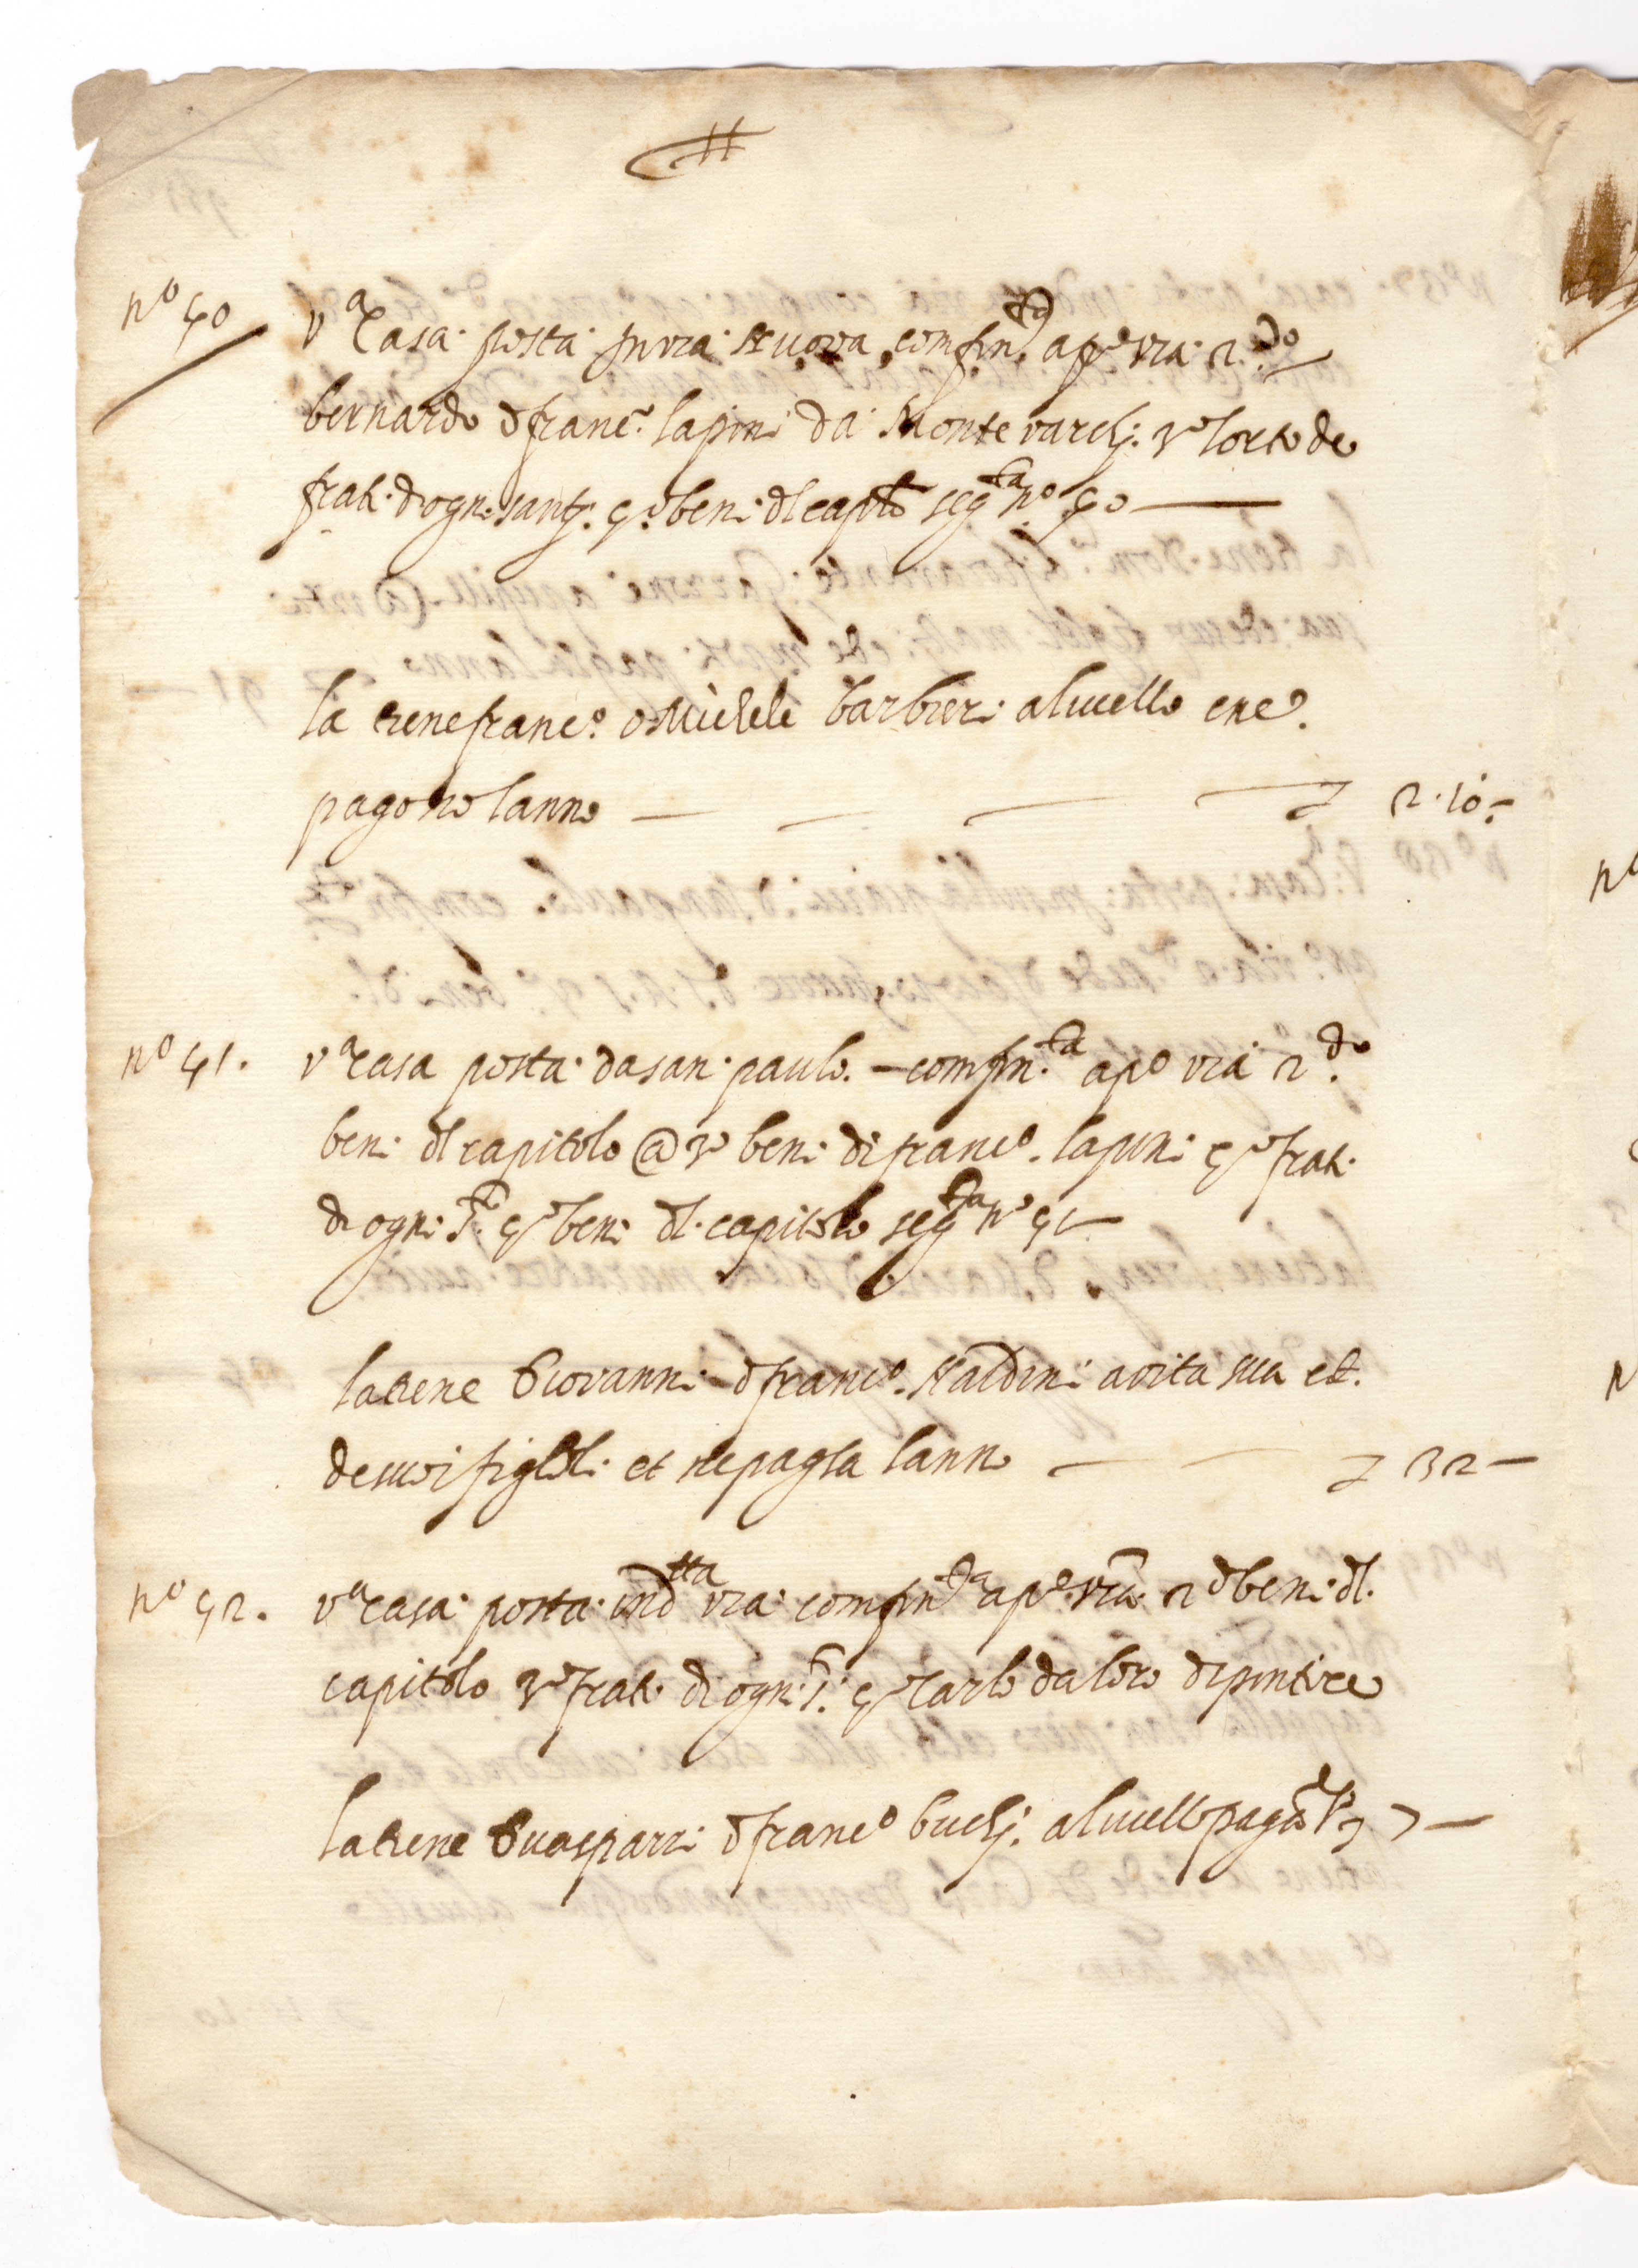 nº 40 vª Casa · posta · in via · Nuova, confinᵗᵃ apº via · 2ᵈᵒ
bernardo d franc.º lapini da Montevarchj. 3º lorto de
frati · d ogni santj. 4º beni · dl capᵗᵒ segᵗᵃ nº 40 —
la tiene franc.º d Michele barbieri alivello e ne
pagono lanno — — — — 7 2 · 10 · -
nº 41 . vª casa posta · da san · paulo. — confin.ᵗᵃ apº via 2.ᵈᵒ
beni dl capitolo @ 3º beni di franc.º lapini 4º frati
di ogni S.ᵗⁱ 4º beni dl · capitolo segᵗᵃ nº 41
la tiene Giovanni d franc.º Naldini a vita sua et
de suoi figloli · et ne pagha lanno — — 7 32 —
nº 42 . vª casa · posta · in dᵗᵗᵃ via · confinᵗᵃ apº via 2º beni · dl
capitolo 3º frati di ogni S.ᵗⁱ 4º Carlo da loro dipintore
la tiene Guasparri d francº buchj. alivello pagha 7 7 —
nº